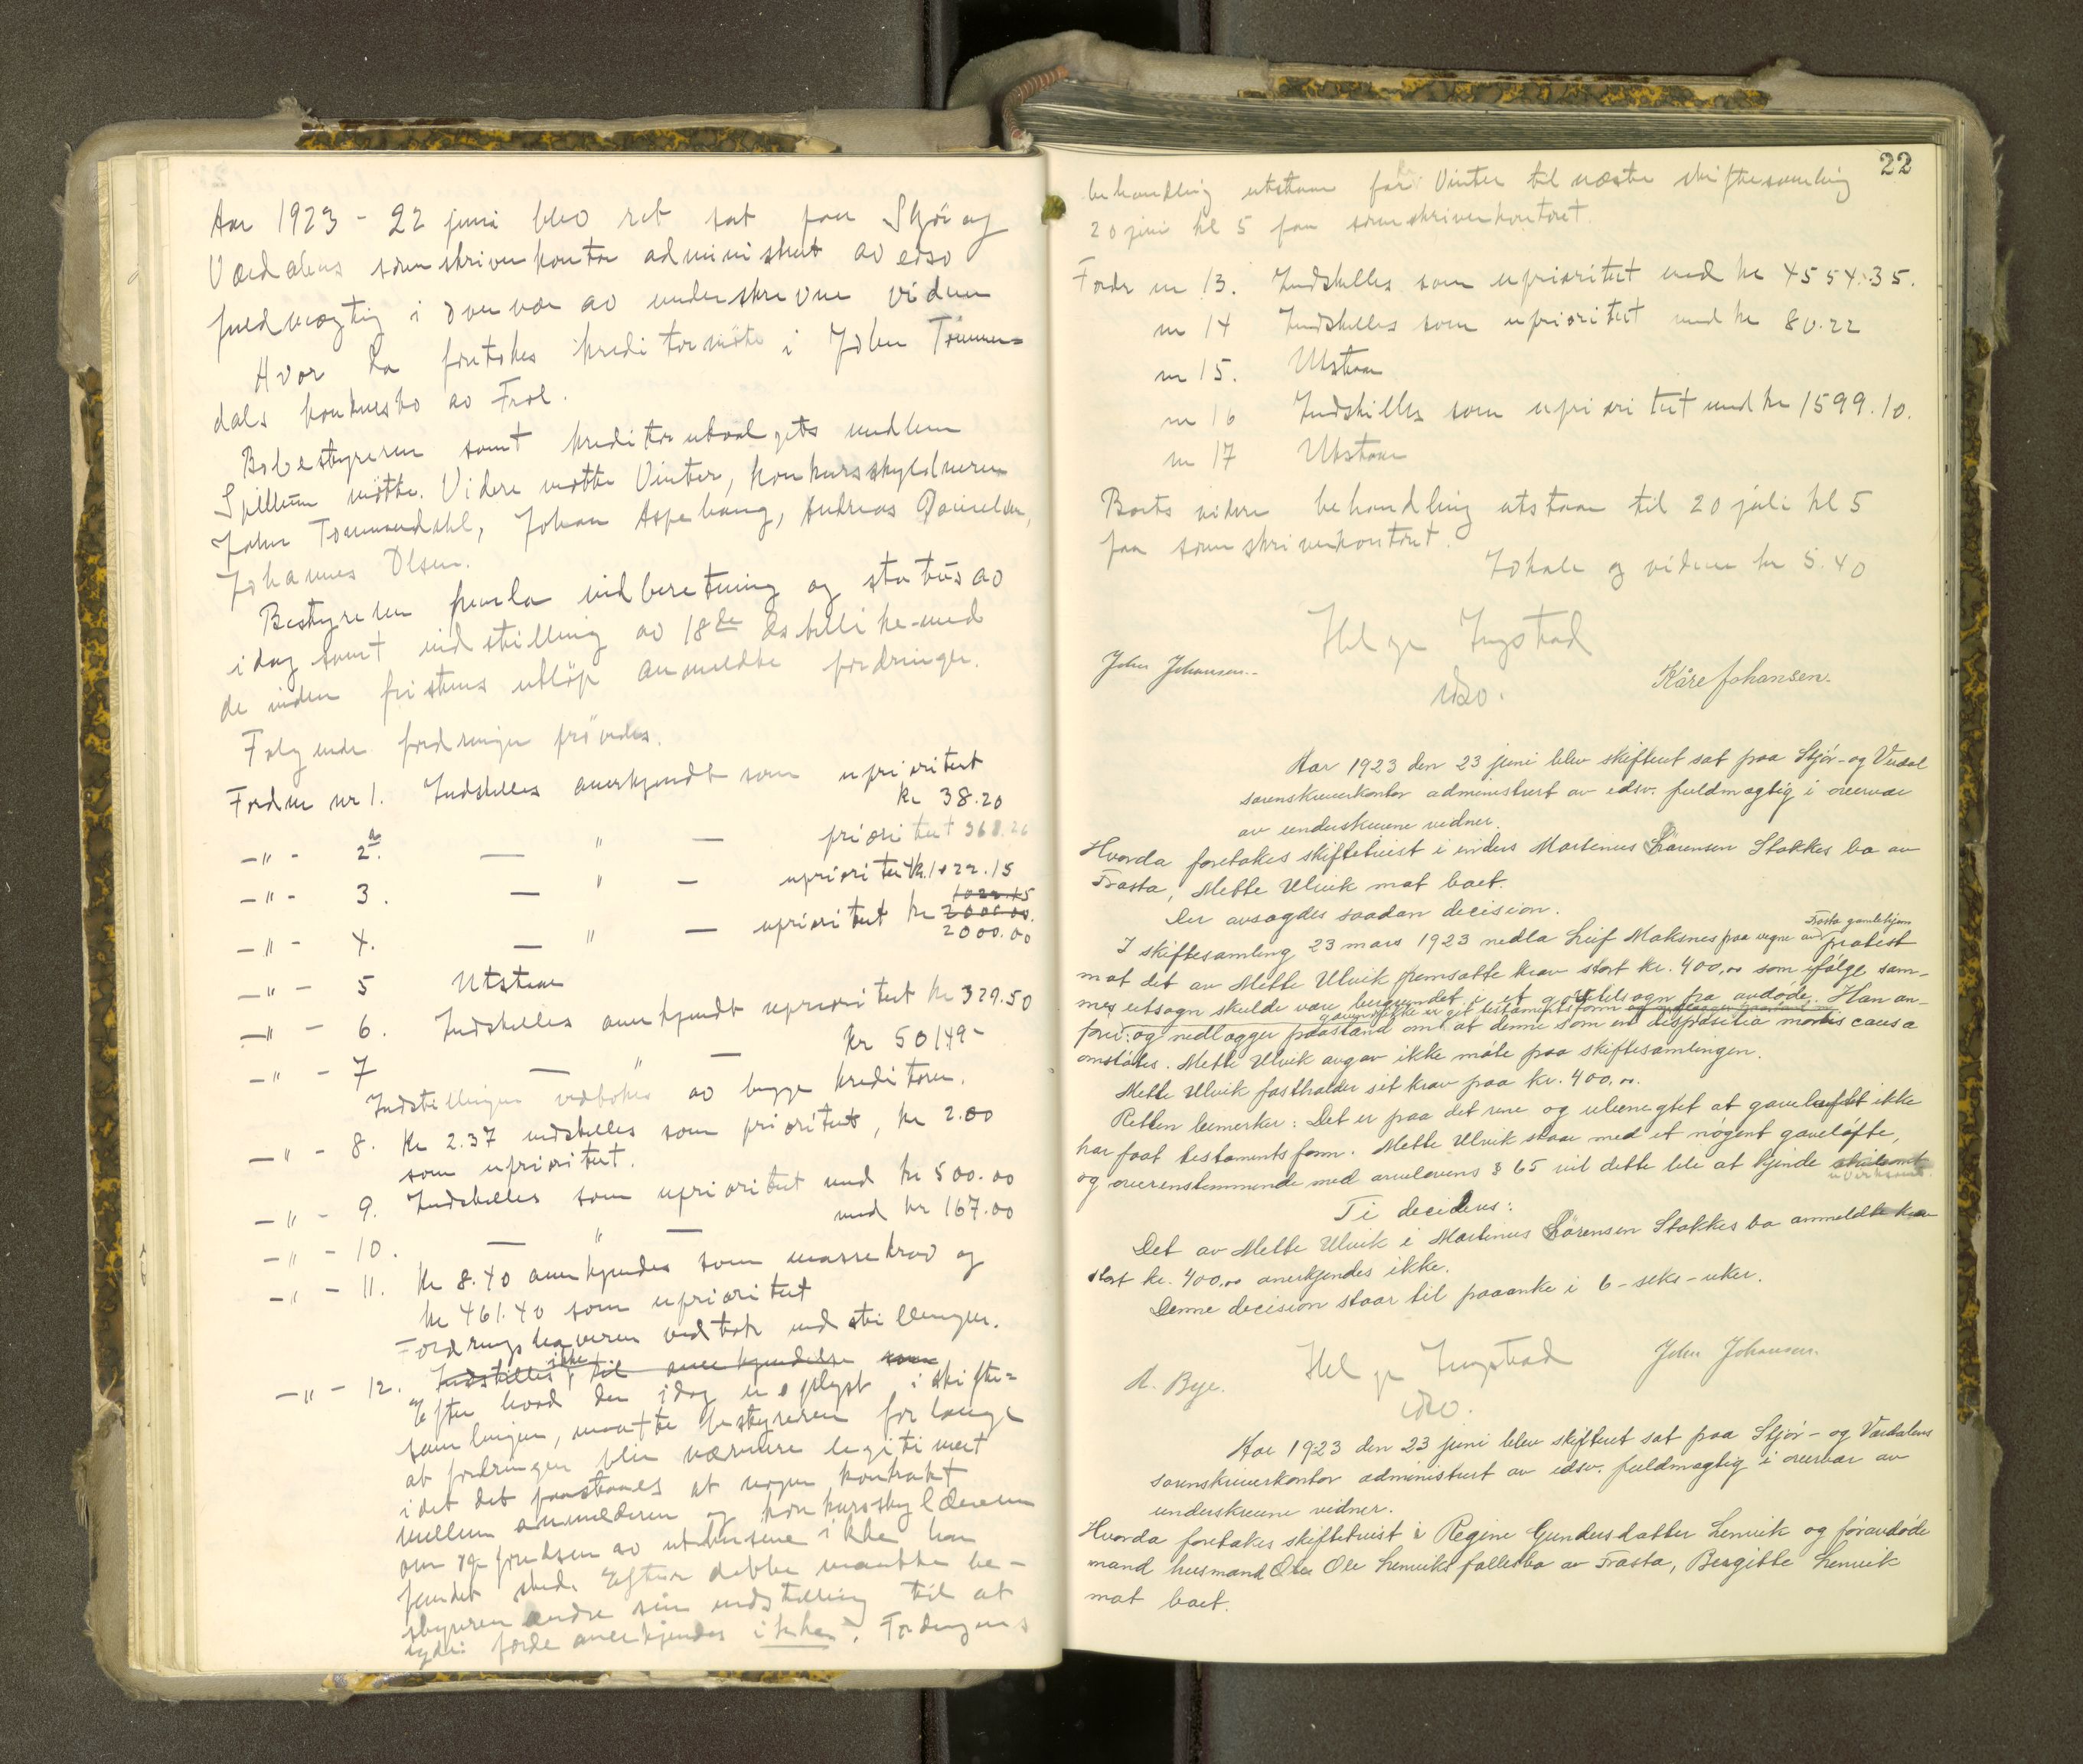 Aar 1923 - 22 juni blev ret sat paa Stjør og
Værdalens sorenskriverkontor administrert av edsv
fuldmægtig i overvær av underskrevne vidner
Hvor da foretokes kreditormøte i John Tømmer=
dals konkursbo av Frol.
Bobestyreren samt kreditorutvalgets medlem
Spillum møtte. Videre møtte Vinter, konkursskyldneren
John Tømmerdahl, Johan Aspehaug, Andreas Danielsen,
Johannes Olsen.
Bestyreren fremla indberetning og status av
idag samt indstilling av 18de ds tillikemed
de inden fristens utløp anmeldte fordringer.
Følgende fordringer prøvedes.
Fordr nr 1. Indstilles anerkjendt som uprioritert
kr 38.20
-"- 2a. — " — prioritert 368.26
uprioritert kr. 1022.15
-"- 3. — " —
1022.15
-"- 4. — " — uprioritert kr 2000.00
2000.00
-"- 5 Utstaar
-"- 6. Indstilles anerkjendt uprioritert kr 329.50
-"- 7 — " — kr 50149-
Indstillingen vedtokes av begge kreditorer.
-"- 8. Kr 2.37 indstilles som prioritert, kr 2.00
som uprioritert.
-"- 9. Indstilles som uprioritert med kr 500.00
-"- 10. — " — med kr 167.00
-"- 11. Kr 8.40 anerkjendes som massekrav og
kr 461.40 som uprioritert
Fordringshaveren vedtok indstillingen.
-"- 12. Indstilles ikke til anerkjendelse som
Efter hvad der idag er oplyst i skifte=
samlingen, maatte bestyreren forlange
at fordringen blir nærmere legitimert
idet det paastaaes at nogen kontrakt
mellem anmelderen og konkursskyldneren
om opfordsen av utensene ikke har
fundet sted. Efter dette maatte be-
styreren ændre sin indstilling til at
forde anerkjendes ikke. Fordringens
22
behandling utstaar for Vinter til næste skiftesamling
20 juni kl 5 paa sorenskriverkontoret.
Fordr nr 13. Indstilles som uprioritert med kr 4554.35.
nr 14 Indstilles som uprioritert med kr 80.22
nr 15. Utstaar
nr 16 Indstilles som uprioritert med kr 1599.10.
nr 17 Utstaar
Boets videre behandling utstaar til 20 juli kl 5
paa sorenskriverkontoret.
Lokale og vidner kr 5.40
Helge Ingstad
John Johansen.
edsv.
Kåre Johansen.
Aar 1923 den 23 juni blev skifteret sat paa Stjør- og Verdal
sorenskriverkontor administrert av edsv. fuldmægtig i overvær
av underskrevne vidner.
Hvorda foretokes skiftetvist i enders Martinus Sørensen Stokkes bo av
Frosta, Mette Ulvik mot boet.
Der avsagdes saadan decision.
I skiftesamling 23 mars 1923 nedla Leif Moksnes paa vegne av Frosta gamlehjem protest
mot det av Mette Ulvik fremsatte krav stort kr. 400,00 som ifølge sam-
mes utsagn skulde være begrundet i et gavetilsagn fra avdøde. Han an-
fører: gaven ikke er git testaments form og nedlægger paastand om at denne som en disposetia mortis causa
omstøtes. Mette Ulvik avgav ikke møte paa skiftesamlingen.
Mette Ulvik fastholder sit krav paa kr. 400,00.
Retten bemerker: Det er paa det rene og ubenegtet at gaveløftet ikke
har faat testaments form. Mette Ulvik staar med et nøgent gaveløfte,
og overensstemmende med arvelovens § 65 vil dette bli at kjende uvirksomt
Ti decideres:
Det av Mette Ulvik i Martinus Sørensen Stokkes bo anmeldte krav
stort kr. 400,00 anerkjendes ikke.
Denne decision staar til paaanke i 6-seks-uker.
Helge Ingstad
John Johansen.
A. Bye.
edsv.
Aar 1923 den 23 juni blev skifteret sat paa Stjør- og Værdalens
sorenskriverkontor administrert av edsv. fuldmægtig i overvær av
underskrevne vidner.
Hvorda foretokes skiftetvist i Regine Gundersdatter Lenvik og føravdøde
mand husmand Oles Ole Lenviks fællesbo av Frosta, Bergitte Lenvik
mot boet.